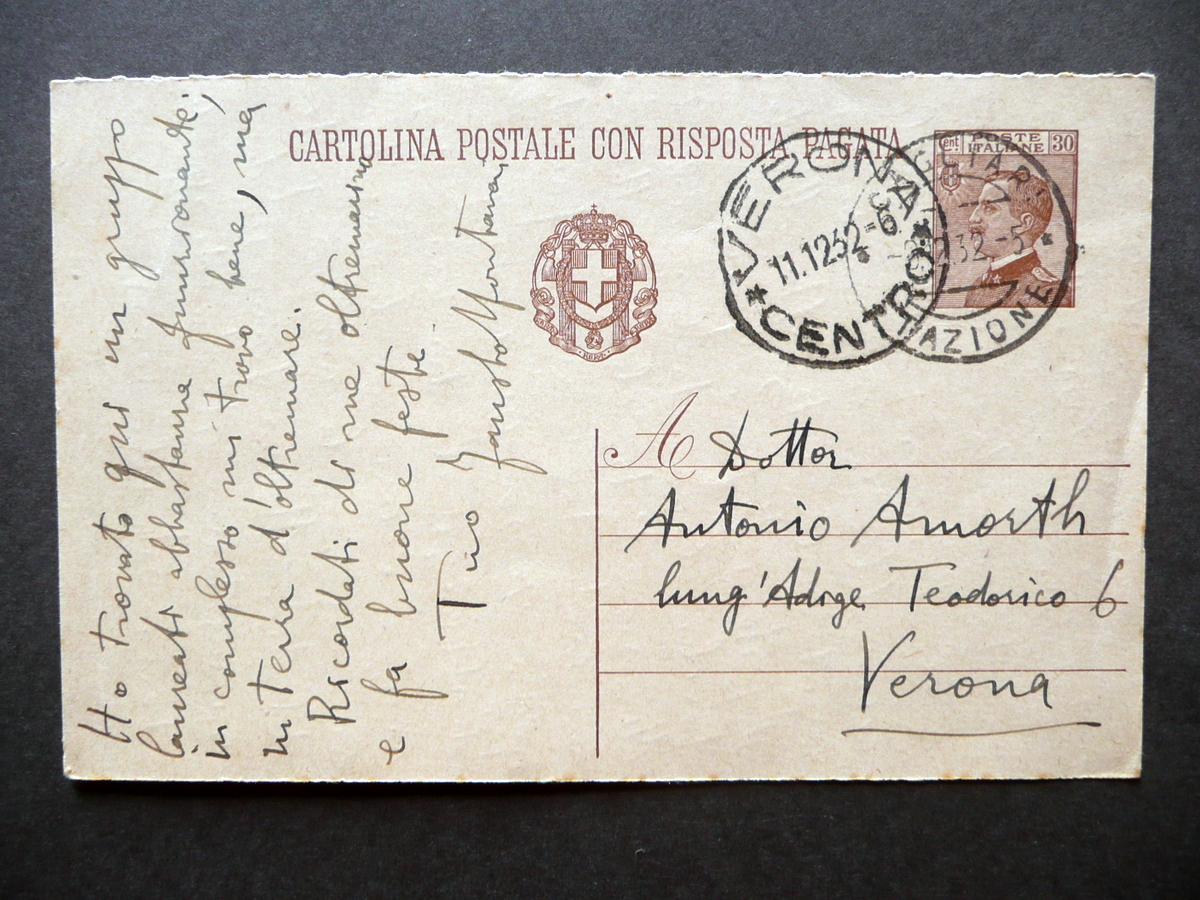 CARTOLINA POSTALE CON RISPOSTA PAGATA
cent. POSTE ITALIANE 30
VERONA
11.12 32-6
CENTRO
CAGLIARI
32-5
AZIONE
A Dottor
Antonio Amorth
lung'Adige Teodorico 6
Verona
Ho trovato qui un gruppo
laureati abbastanza funzionante;
in complesso mi trovo bene, ma
in terra d'oltremare.
Ricordati di me oltremarino
e fa buone feste.
Tuo Fausto Montanari